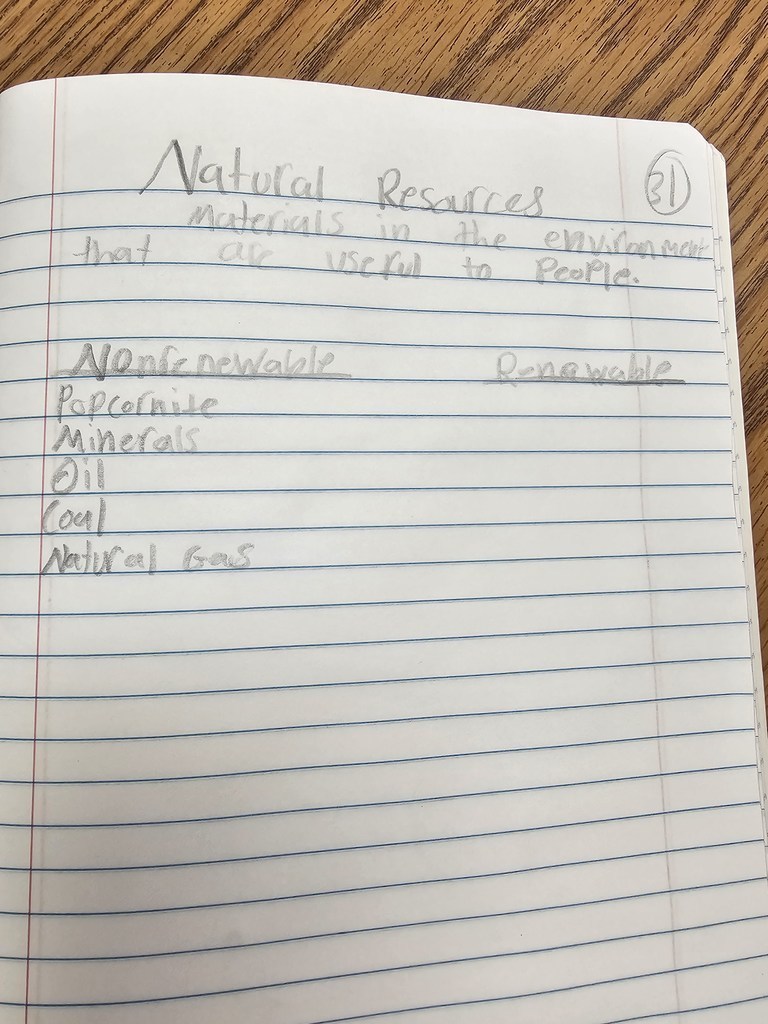 Natural Resources 31
Materials in the environment
that are useful to People.
Nonrenewable Renewable
Popcornite
Minerals
Oil
Coal
Natural Gas